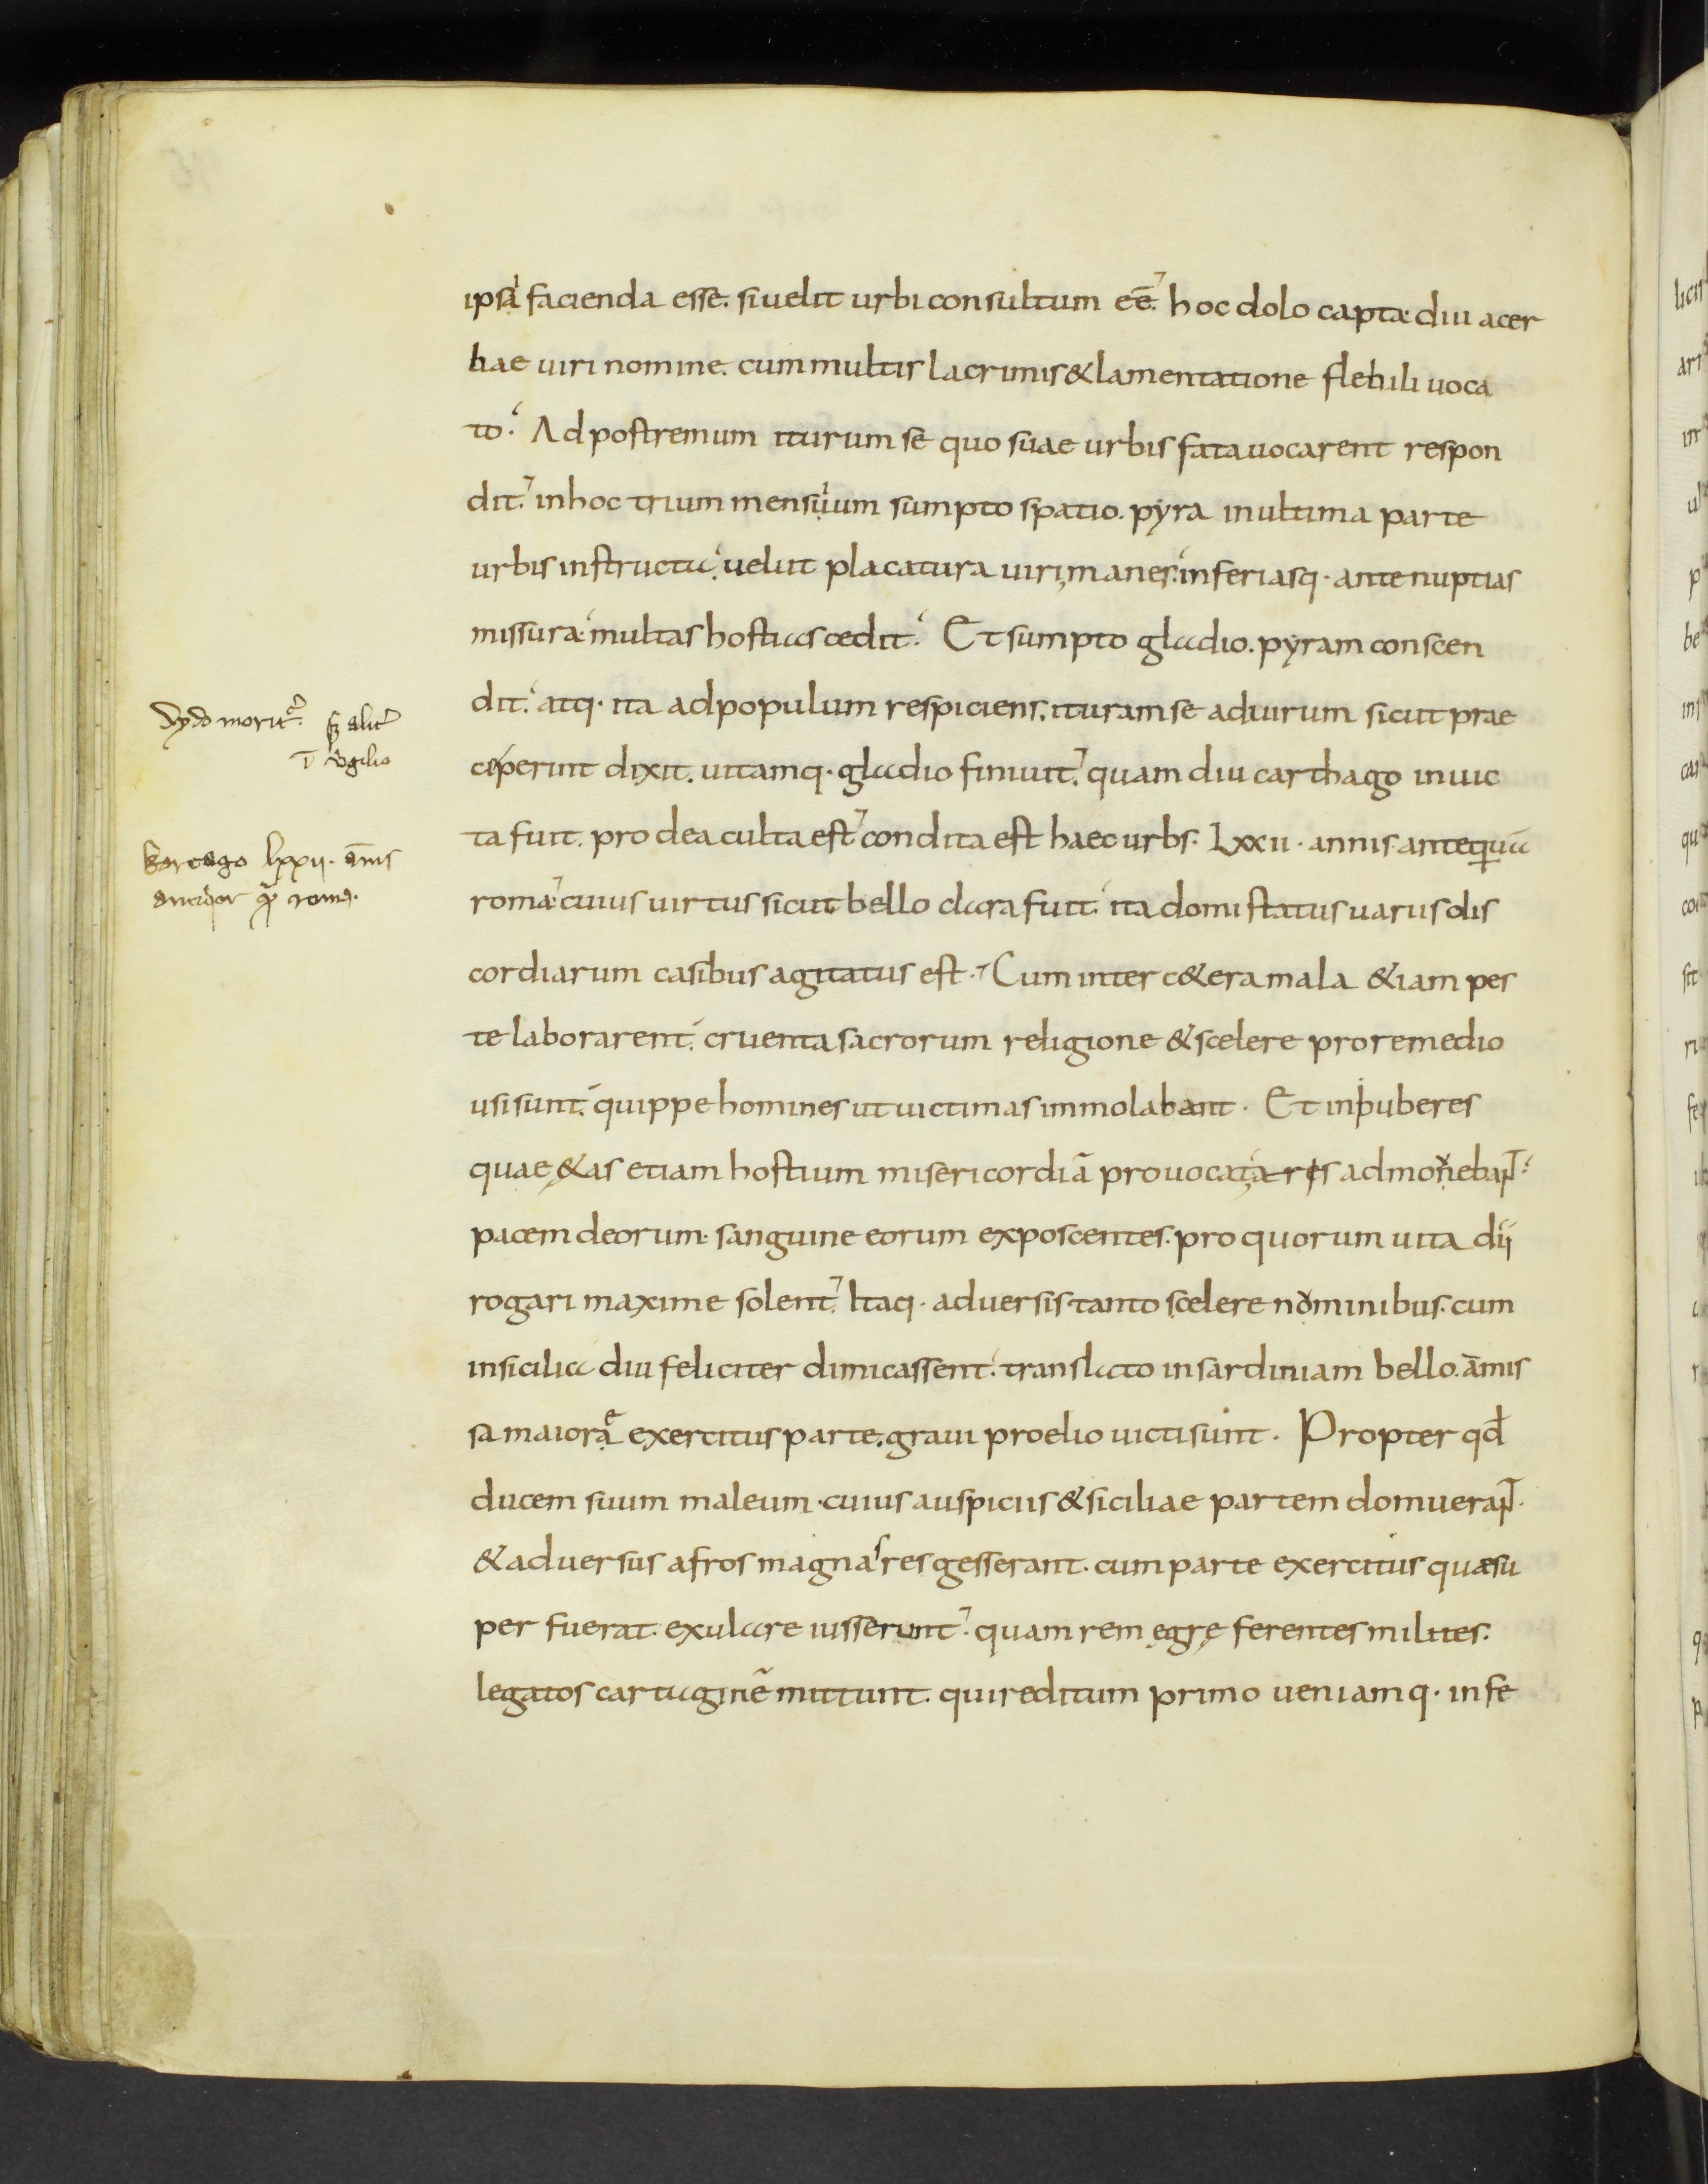 ipsi facienda esse. si uelit urbi consultum eē. hoc dolo capta diu acer
bae uiri nomine. cum multis lacrimis & lamentatione flebili uoca
to. Ad postremum iturum se quo suae urbis fata uocarent respon
dit. in hoc trium mensium sumpto spatio. pyra in ultima parte
urbis instructa. uelut placatura uiri manes. inferiasq· ante nuptias
missura multas hostias cedit. Et sumpto gladio. pyram conscen
dit. atq· ita ad populum respiciens. ituram se ad uirum sicut prae
Dydo morit᷑. sꝫ alit᷑
ī v̓gilio
ceperint dixit. uitamq· gladio finiuit. quam diu carthago inuic
ta fuit. pro dea culta est. condita est haec urbs. Lxxii · annis antequā
Kartago lxxii. ānis
antiq̇or quā roma.
romę. cuius uirtus sicut bello clara fuit. ita domi status uariis dis
cordiarum casibus agitatus est. Cum inter c&era mala &iam pes
te laborarent. cruenta sacrorum religione & scelere pro remedio
usi sunt. quippe homines ut uictimas immolabant. Et inpuberes
quae &as etiam hostium misericordiā prouocat aris admouebaɴᴛ.
pacem deorum. sanguine eorum exposcentes. pro quorum uita dii
rogari maxime solent. Itaq· aduersis tanto scelere nominibus. cum
in sicilia diu feliciter dimicassent. translato in sardiniam bello. āmis
sa maiore exercitus parte. graui proelio uicti sunt. Propter qđ
ducem suum maleum. cuius auspiciis & siciliae partem domueraɴᴛ.
& aduersus afros magnas res gesserant. cum parte exercitus quae su
per fuerat. exulare iusserunt. quam rem ęgrę ferentes milites.
legatos cartaginē mittunt. qui reditum primo ueniamq· infe